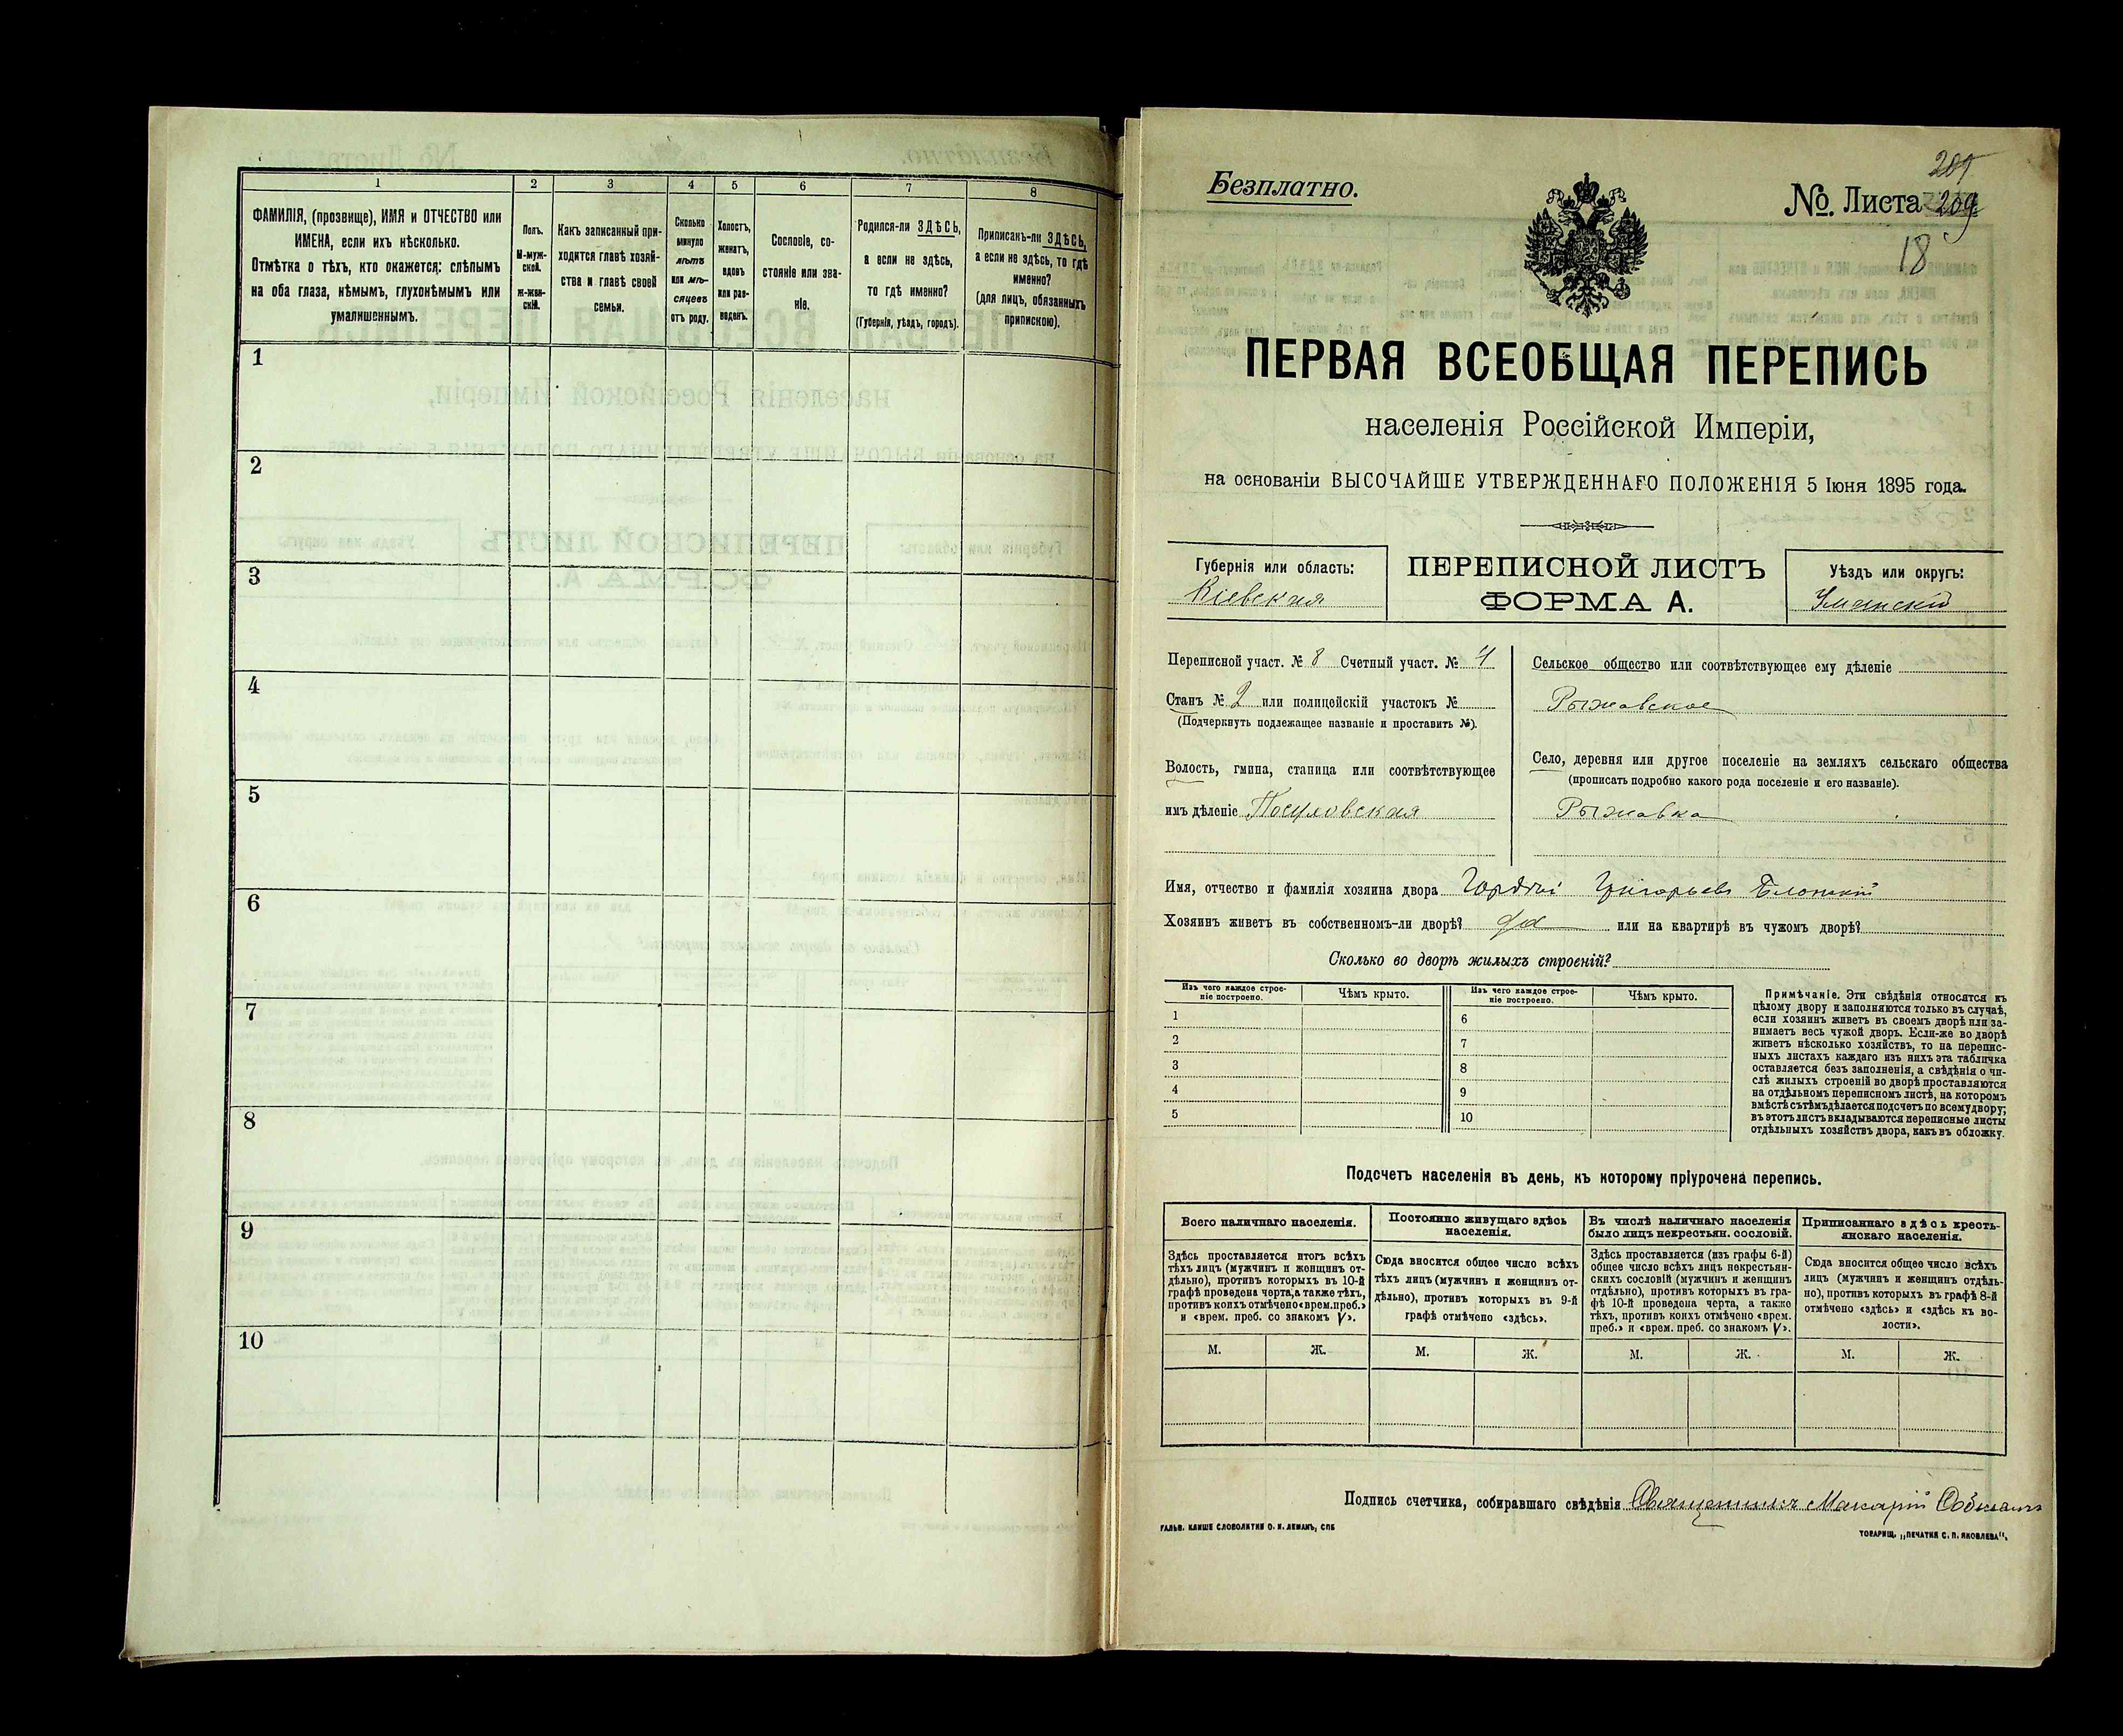 1 2 3 4 5 6 7 8
ФАМИЛІЯ, (прозвище), ИМЯ и ОТЧЕСТВО или
ИМЕНА, если ихъ нѣсколько.
Отмѣтка о тѣхъ, кто окажется: слѣпымъ
на оба глаза, нѣмымъ, глухонѣмымъ или
умалишеннымъ.
Полъ.
М-муж-
ской.
ж-жен-
скій.
Какъ записанный при-
ходится главѣ хозяй-
ства и главѣ своей
семьи.
Сколько
минуло
лѣтъ
или мѣ-
сяцевъ
отъ роду.
Холостъ,
женатъ,
вдовъ
или раз-
веденъ.
Сословіе, со-
стояніе или зва-
ніе.
Родился-ли ЗДѢСЬ,
а если не здѣсь,
то гдѣ именно?
(Губернія, уѣздъ, городъ).
Приписанъ-ли ЗДѢСЬ,
а если не здѣсь, то гдѣ
именно?
(для лицъ, обязанныхъ
припискою).
1
2
3
4
5
6
7
8
9
10
Безплатно.
209
№. Листа 209
18
ПЕРВАЯ ВСЕОБЩАЯ ПЕРЕПИСЬ
населенія Россійской Имперіи,
на основаніи ВЫСОЧАЙШЕ УТВЕРЖДЕННАГО ПОЛОЖЕНІЯ 5 Іюня 1895 года.
Губернія или область:
Кіевская
ПЕРЕПИСНОЙ ЛИСТЪ
ФОРМА А.
Уѣздъ или округъ:
Уманскій
Переписной участ. № 8 Счетный участ. № 4
Станъ № 2 или полицейскій участокъ №
(Подчеркнуть подлежащее названіе и проставить №).
Волость, гмина, станица или соотвѣтствующее
имъ дѣленіе Посуховская
Сельское общество или соотвѣтствующее ему дѣленіе
Рыжавское
Село, деревня или другое поселеніе на земляхъ сельскаго общества
(прописать подробно какого рода поселеніе и его названіе).
Рыжавка
Имя, отчество и фамилія хозяина двора Гордій Григорьевъ
Хозяинъ живетъ въ собственномъ-ли дворѣ? да или на квартирѣ въ чужомъ дворѣ?
Сколько во дворѣ жилыхъ строеній?
Изъ чего каждое строе-
ніе построено.
Чѣмъ крыто.
Изъ чего каждое строе-
ніе построено.
Чѣмъ крыто.
1 6
2 7
3 8
4 9
5 10
Примѣчаніе. Эти свѣдѣнія относятся къ
цѣлому двору и заполняются только въ случаѣ,
если хозяинъ живетъ въ своемъ дворѣ или за-
нимаетъ весь чужой дворъ. Если-же во дворѣ
живетъ нѣсколько хозяйствъ, то на перепис-
ныхъ листахъ каждаго изъ нихъ эта табличка
оставляется безъ заполненія, а свѣдѣнія о чи-
слѣ жилыхъ строеній во дворѣ проставляются
на отдѣльномъ переписномъ листѣ, на которомъ
вмѣстѣ съ тѣмъ дѣлается подсчетъ по всему двору;
въ этотъ листъ вкладываются переписные листы
отдѣльныхъ хозяйствъ двора, какъ въ обложку.
Подсчетъ населенія въ день, къ которому пріурочена перепись.
Всего наличнаго населенія.
Здѣсь проставляется итогъ всѣхъ
тѣхъ лицъ (мужчинъ и женщинъ от-
дѣльно), противъ которыхъ въ 10-й
графѣ проведена черта, а также тѣхъ,
противъ коихъ отмѣчено «врем. преб.»
и «врем. преб. со знакомъ V».
Постоянно живущаго здѣсь
населенія.
Сюда вносится общее число всѣхъ
тѣхъ лицъ (мужчинъ и женщинъ от-
дѣльно), противъ которыхъ въ 9-й
графѣ отмѣчено «здѣсь».
Въ числѣ наличнаго населенія
было лицъ некрестьян. сословій.
Здѣсь проставляется (изъ графы 6-й)
общее число всѣхъ лицъ некрестьян-
скихъ сословій (мужчинъ и женщинъ
отдѣльно), противъ которыхъ въ гра-
фѣ 10-й проведена черта, а также
тѣхъ, противъ коихъ отмѣчено «врем.
преб.» и «врем. преб. со знакомъ V».
Приписаннаго здѣсь кресть-
янскаго населенія.
Сюда вносится общее число всѣхъ
лицъ (мужчинъ и женщинъ отдѣль-
но), противъ которыхъ въ графѣ 8-й
отмѣчено «здѣсь» и «здѣсь къ во-
лости».
М. Ж. М. Ж. М. Ж. М. Ж.
Подпись счетчика, собиравшаго свѣдѣнія Священникъ Макарій
ГАЛЬВ. КЛИШЕ СЛОВОЛИТНИ О. И. ЛЕМАНЪ, СПБ
ТОВАРИЩ. „ПЕЧАТНЯ С. П. ЯКОВЛЕВА“.